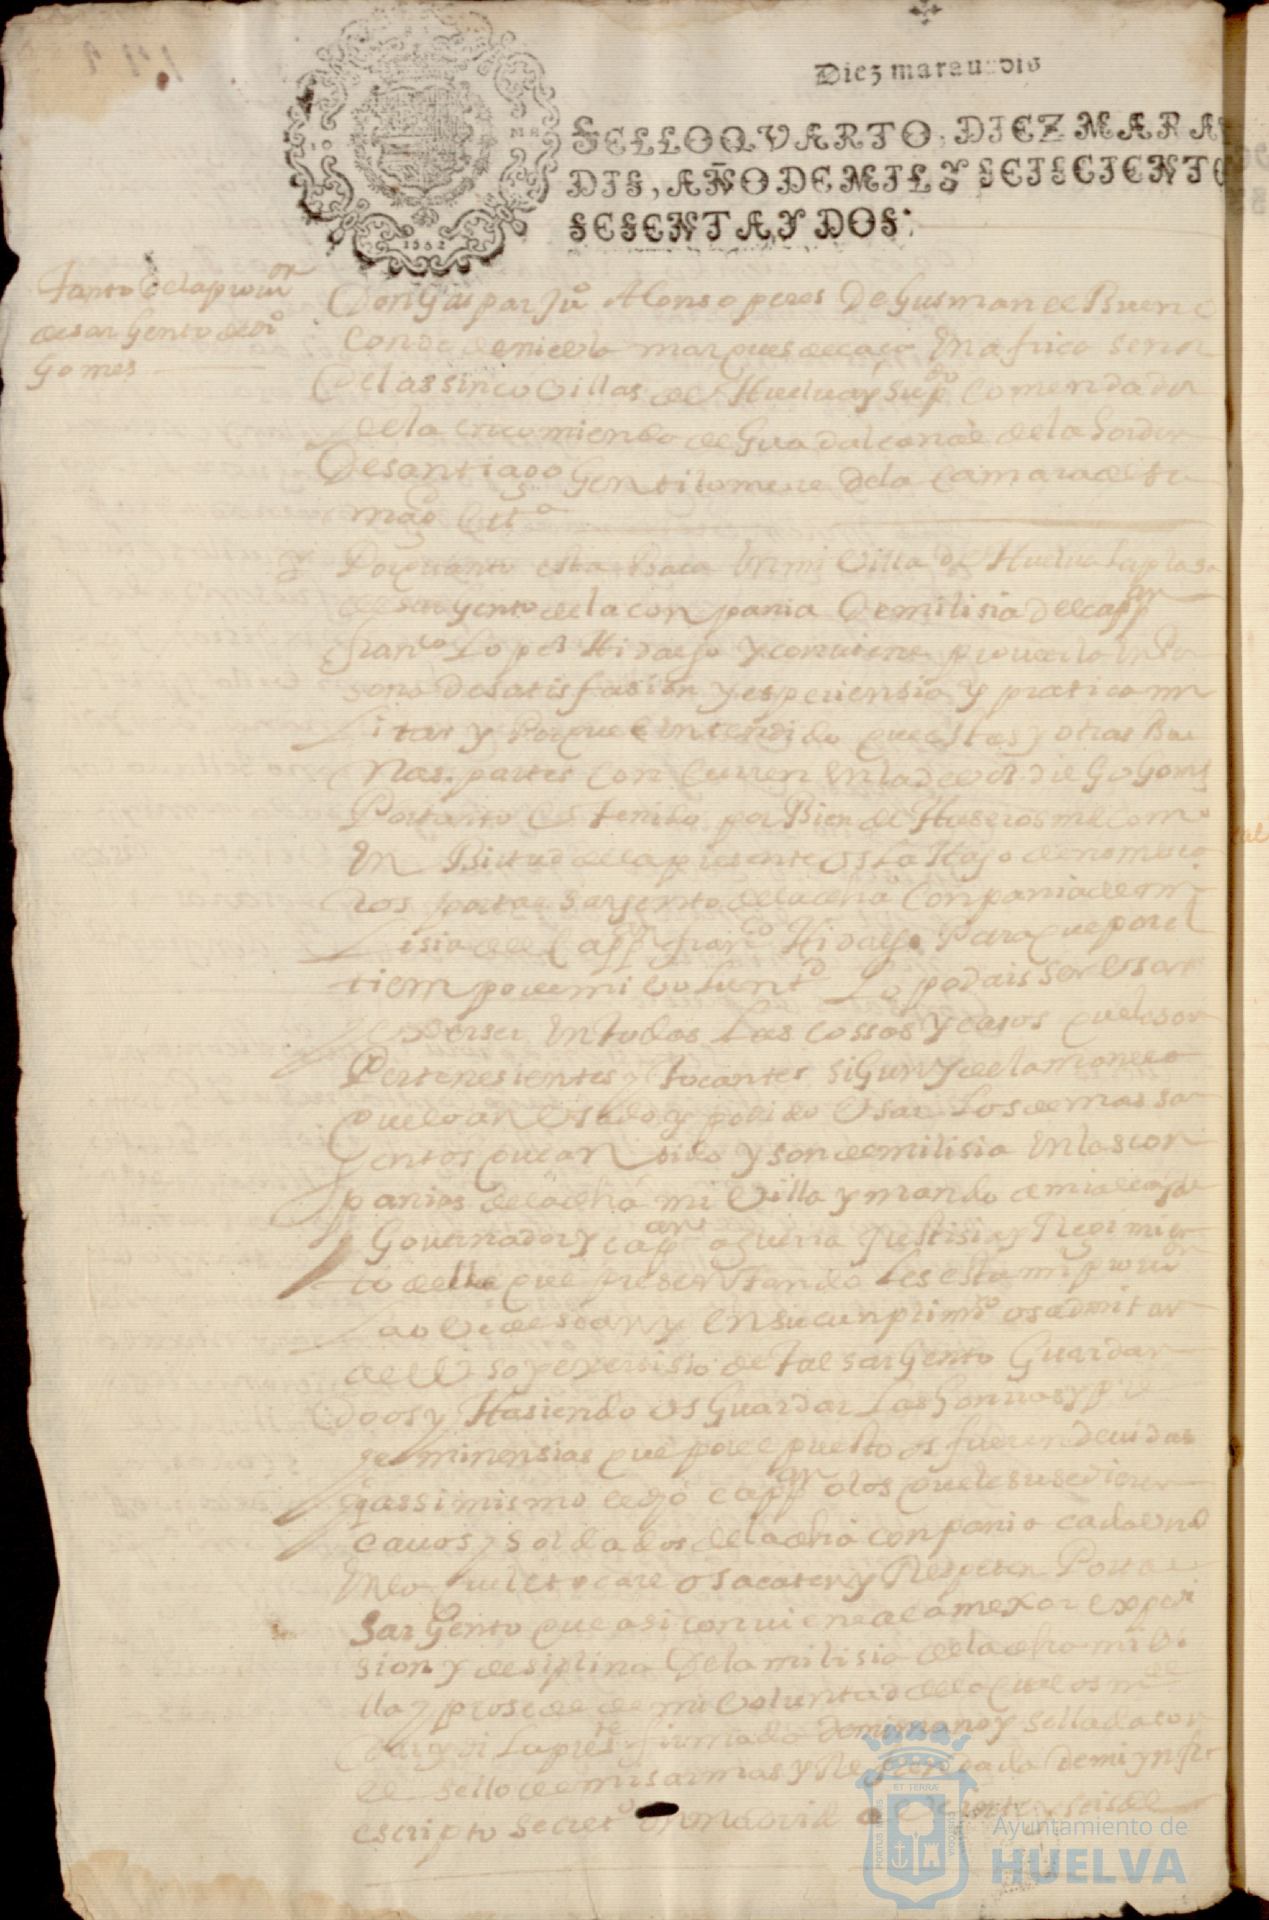 Diez marauedis
SELLO QVARTO, DIEZ MARAV
DIS, AÑO DE MIL Y SEISCIENTO
SESENTA Y DOS.
1662
Tanto de la prouon
de sargento de
Gomes
Don Gaspar Juo Alonso peres De Gusman el Bueno
Conde de niebla marques de caça En africa señor
De las sinco Villas de Huelua y su pdo Comendador
de la encomienda de Guadalcanal de la horden
De santiago Gentilombre de la Camara de su
magd
Por quanto esta Baca En mi Villa de Huelua la plasa
de sargento de la conpania De milisia del cappan
Franco Lopes Hidalgo y conuiene proueerla En per
sona de satisfasion y esperiensia y pratica mi
litar y Porque E entendido que estas y otras Bue
nas partes Concurren En la de Vos diego Goms
Por tanto E tenido por Bien de Haseros md como
En Birtud de la presente Os la Hago de nombra
ros por tal sargento de la dha Conpania de mi
lisia del Cappan Franco Hidalgo Para que por el
tiempo de mi Voluntd Lo podais ser Usar
y exerser En todas Las cossas y casos que le son
Pertenesientes y tocantes sigun y de la manera
que lo an Usado y podido Usar Los demas sar
gentos que an sido y son de milisia En las con
panias de la dha mi Villa y mando a mi alcalde
Gouernador y capan a guerra Justisia y Regimien
to della que presentandoles esta mi prouon
la obedescan y En su cunplimto os admitan
al Uso y exersisio de tal sargento Guardan
doos y Hasiendo os Guardar Las honrras y pre
heminensias que por el puesto os fueren deuidas
y assimismo al dho cappan o los que le susedieren
cauos y soldados de la dha conpania cada uno
En lo que le tocare os acaten y Respeten Por tal
Sargento que asi conuiene a la mexor expedi
sion y desiplina De la milisia de la dha mi Vi
lla y prosede de mi Voluntad de lo qual os mde
dar y di la preste firmada de mi mano y sellada con
el sello de mis armas y Refrendada de mi ynfra
escripto secreto En Madrid a Veinte y seis de
Ayuntamiento de
HUELVA